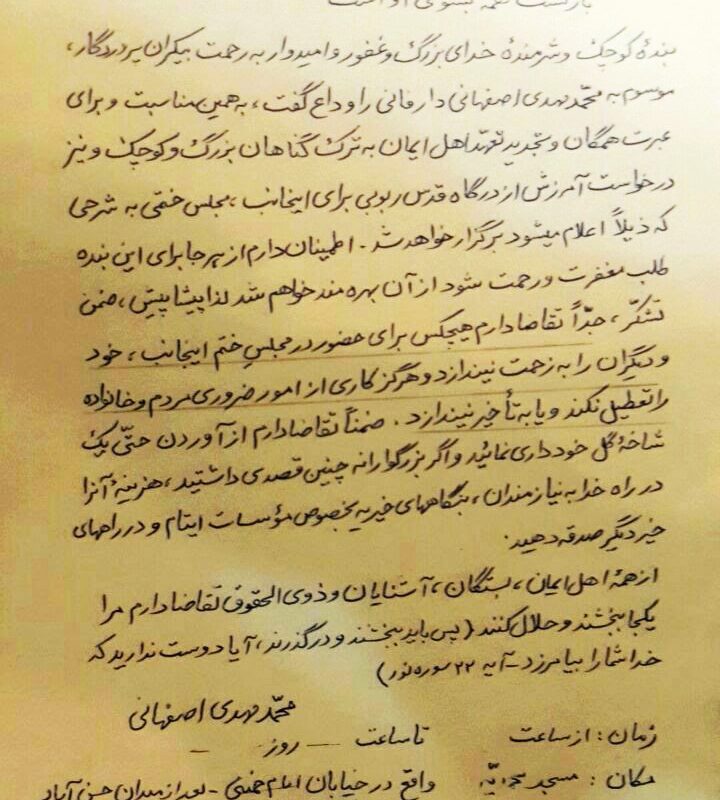 بازگشت همه بسوی او است
بندهٔ کوچک و شرمندهٔ خدای بزرگ و غفور و امیدوار به رحمت بیکران پروردگار،
موسوم به محمّد مهدی اصفهانی دار فانی را وداع گفت، به همین مناسبت و برای
عبرت همگان و تجدید تعهّد اهل ایمان به ترک گناهان بزرگ و کوچک و نیز
درخواست آمرزش از درگاه قدس ربوبی برای اینجانب، مجلس ختمی به شرحی
که ذیلاً اعلام میشود برگزار خواهد شد. اطمینان دارم از هر جا برای این بنده
طلب مغفرت و رحمت شود از آن بهره مند خواهم شد لذا پیشاپیش، ضمن
تشکّر، جدّاً تقاضا دارم هیچکس برای حضور در مجلسِ ختم اینجانب، خود
و دیگران را به زحمت نیندازد و هرگز کاری از امور ضروری مردم و خانواده
را تعطیل نکند و یا به تأخیر نیندازد. ضمناً تقاضا دارم از آوردن حتّی یک
شاخهٔ گل خودداری نمائید و اگر بزرگوارانه چنین قصدی داشتید، هزینهٔ آنرا
در راه خدا به نیازمندان، بنگاههای خیریه بخصوص مؤسسات ایتام و در راههای
خیر دیگر صدقه دهید.
از همهٔ اهل ایمان، بستگان، آشنایان و ذوی الحقوق تقاضا دارم مرا
یکجا ببخشند و حلال کنند (پس باید ببخشند و درگذرند، آیا دوست ندارید که
خدا شما را بیامرزد - آیه ۲۲ سوره نور)
محمّد مهدی اصفهانی
زمان: از ساعت تا ساعت — روز —
مکان: مسجد واقع در خیابان امام خمینی - بعد از میدان حسن آباد